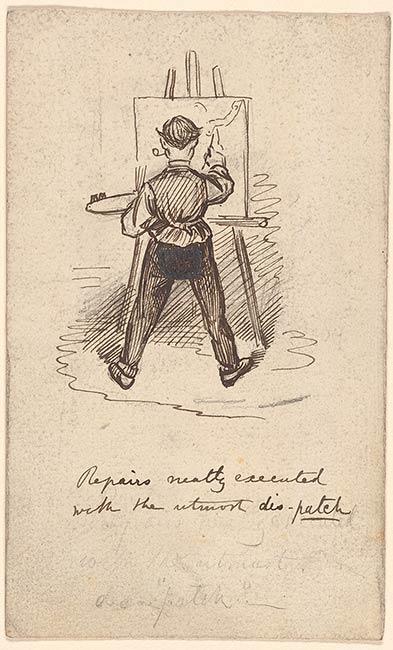 Repairs neatly executed
with the utmost dis-patch
with the utmost
"patch"